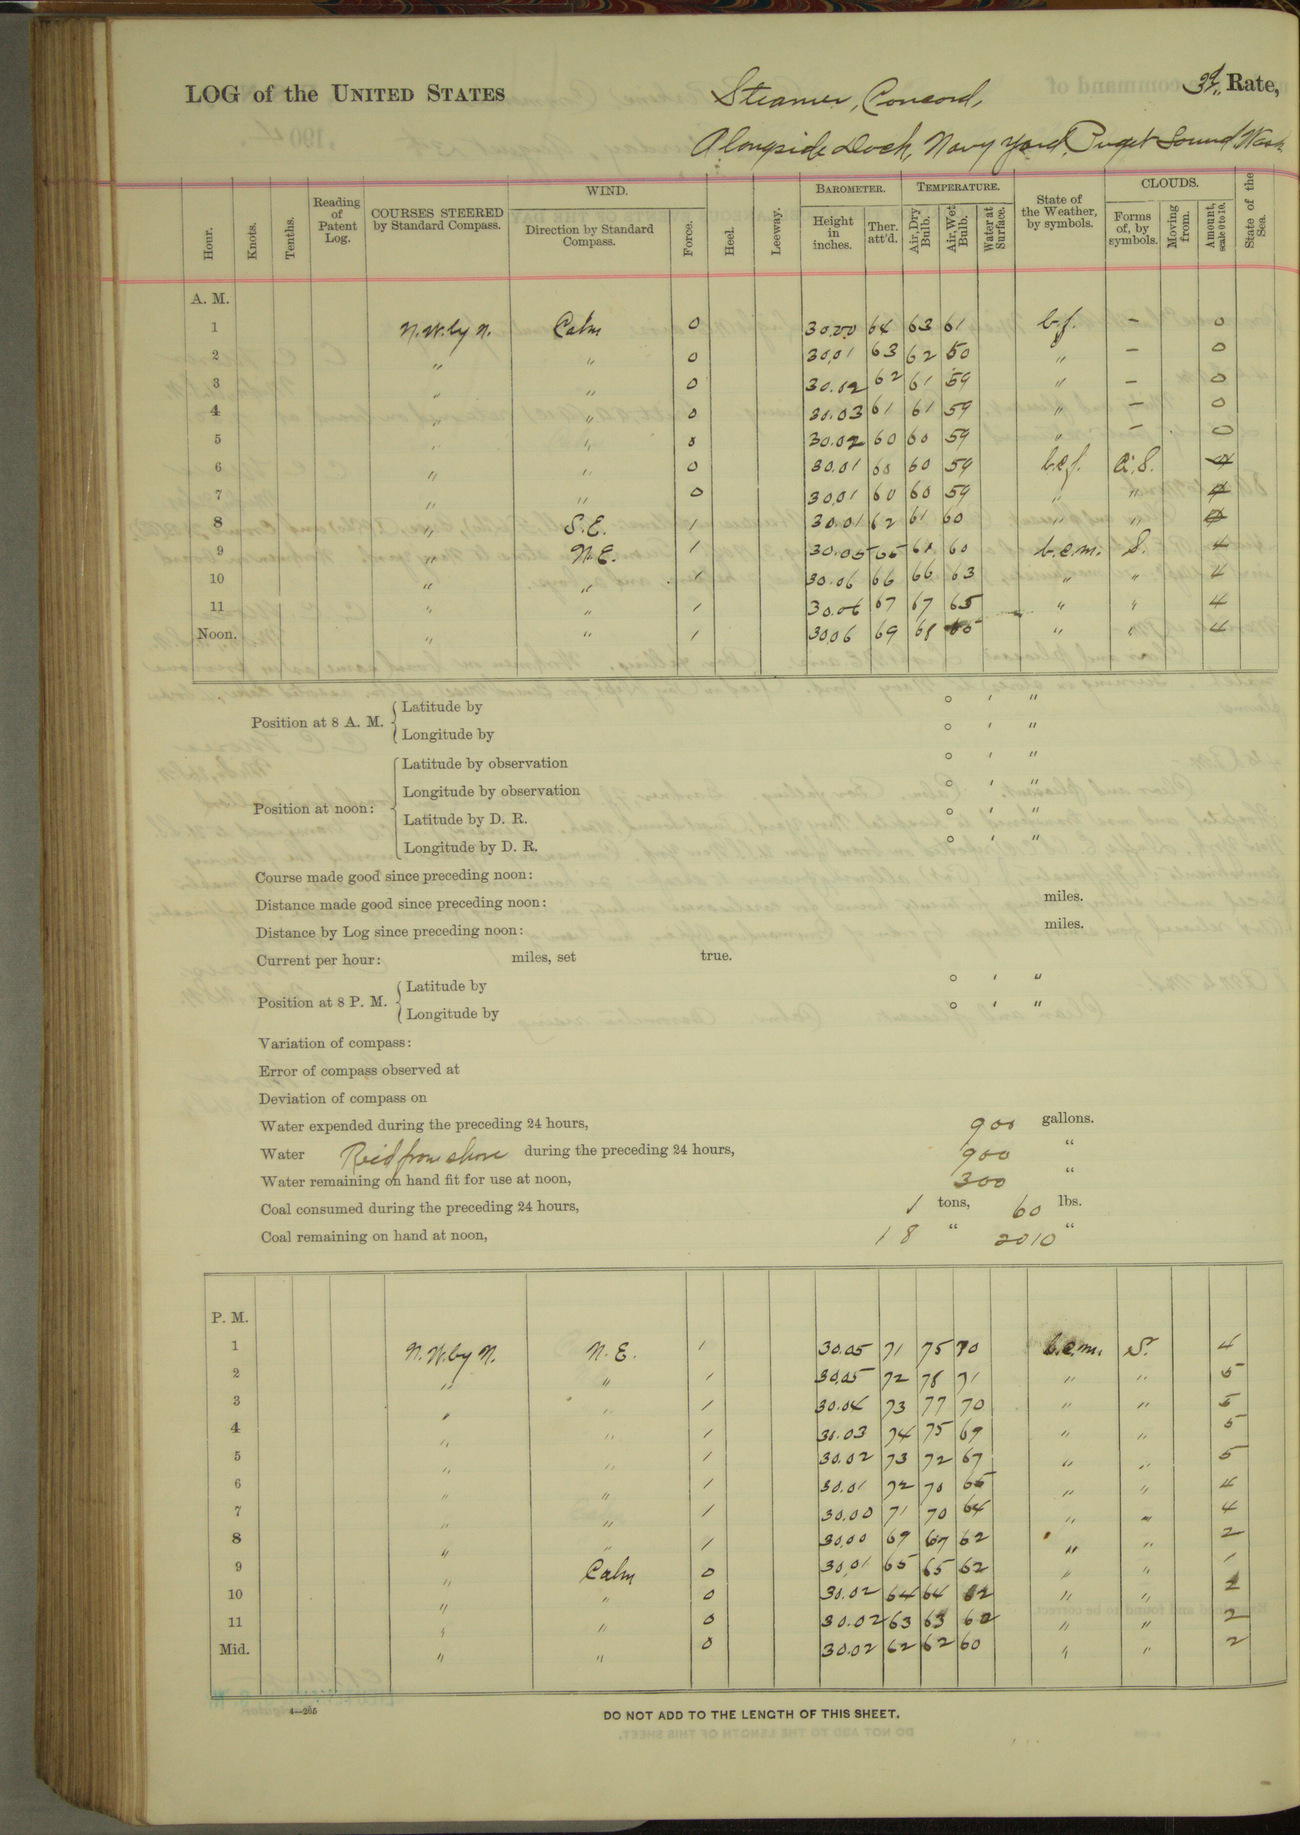 LOG of the UNITED STATES Steamer, Concord, 3d. Rate,
Alongside Dock, Navy Yard, Puget Sound Wash.
Hour. Knots. Tenths. Reading of Patent Log. COURSES STEERED by Standard Compass. WIND. Direction by Standard Compass. Force. Heel. Leeway. BAROMETER. Height in inches. Ther. att'd. TEMPERATURE. Air, Dry Bulb. Air, Wet Bulb. Water at Surface. State of the Weather, by symbols. CLOUDS. Forms of, by symbols. Moving from. Amount, scale 0 to 10. State of the Sea.
A. M.
1 N.W. by N. Calm 0 30.00 64 63 61 b.f. – 0
2 " " 0 30.01 63 62 50 " – 0
3 " " 0 30.02 62 61 59 " – 0
4 " " 0 30.03 61 61 59 " – 0
5 " " 0 30.02 60 60 59 " – 0
6 " " 0 30.01 60 60 59 b.c.f. Ci.S. 4
7 " " 0 30.01 60 60 59 " "
8 " S.E. 1 30.01 62 61 60 " "
9 " N.E. 1 30.05 65 61 60 b.c.m. S. 4
10 " " 1 30.06 66 66 63 " " 4
11 " " 1 30.06 67 67 65 " " 4
Noon. " " 1 30.06 69 68 65 " " 4
Position at 8 A. M. { Latitude by ° ' "
Longitude by ° ' "
Position at noon: { Latitude by observation ° ' "
Longitude by observation ° ' "
Latitude by D. R. ° ' "
Longitude by D. R. ° ' "
Course made good since preceding noon:
Distance made good since preceding noon: miles.
Distance by Log since preceding noon: miles.
Current per hour: miles, set true.
Position at 8 P. M. { Latitude by ° ' "
Longitude by ° ' "
Variation of compass:
Error of compass observed at
Deviation of compass on
Water expended during the preceding 24 hours, 900 gallons.
Water Rec'd from shore during the preceding 24 hours, 900 "
Water remaining on hand fit for use at noon, 300 "
Coal consumed during the preceding 24 hours, 1 tons, 60 lbs.
Coal remaining on hand at noon, 18 " 2010 "
P. M.
1 N.W. by N. N.E. 1 30.05 71 75 70 b.c.m. S. 4
2 " " 1 30.05 72 78 71 " " 5
3 " " 1 30.04 73 77 70 " " 5
4 " " 1 30.03 74 75 69 " " 5
5 " " 1 30.02 73 72 67 " " 5
6 " " 1 30.01 72 70 65 " " 4
7 " " 1 30.00 71 70 64 " " 4
8 " " 1 30.00 69 67 62 " " 2
9 " Calm 0 30.01 65 65 62 " " 1
10 " " 0 30.02 64 64 62 " " 2
11 " " 0 30.02 63 63 62 " " 2
Mid. " " 0 30.02 62 62 60 " " 2
4—265
DO NOT ADD TO THE LENGTH OF THIS SHEET.